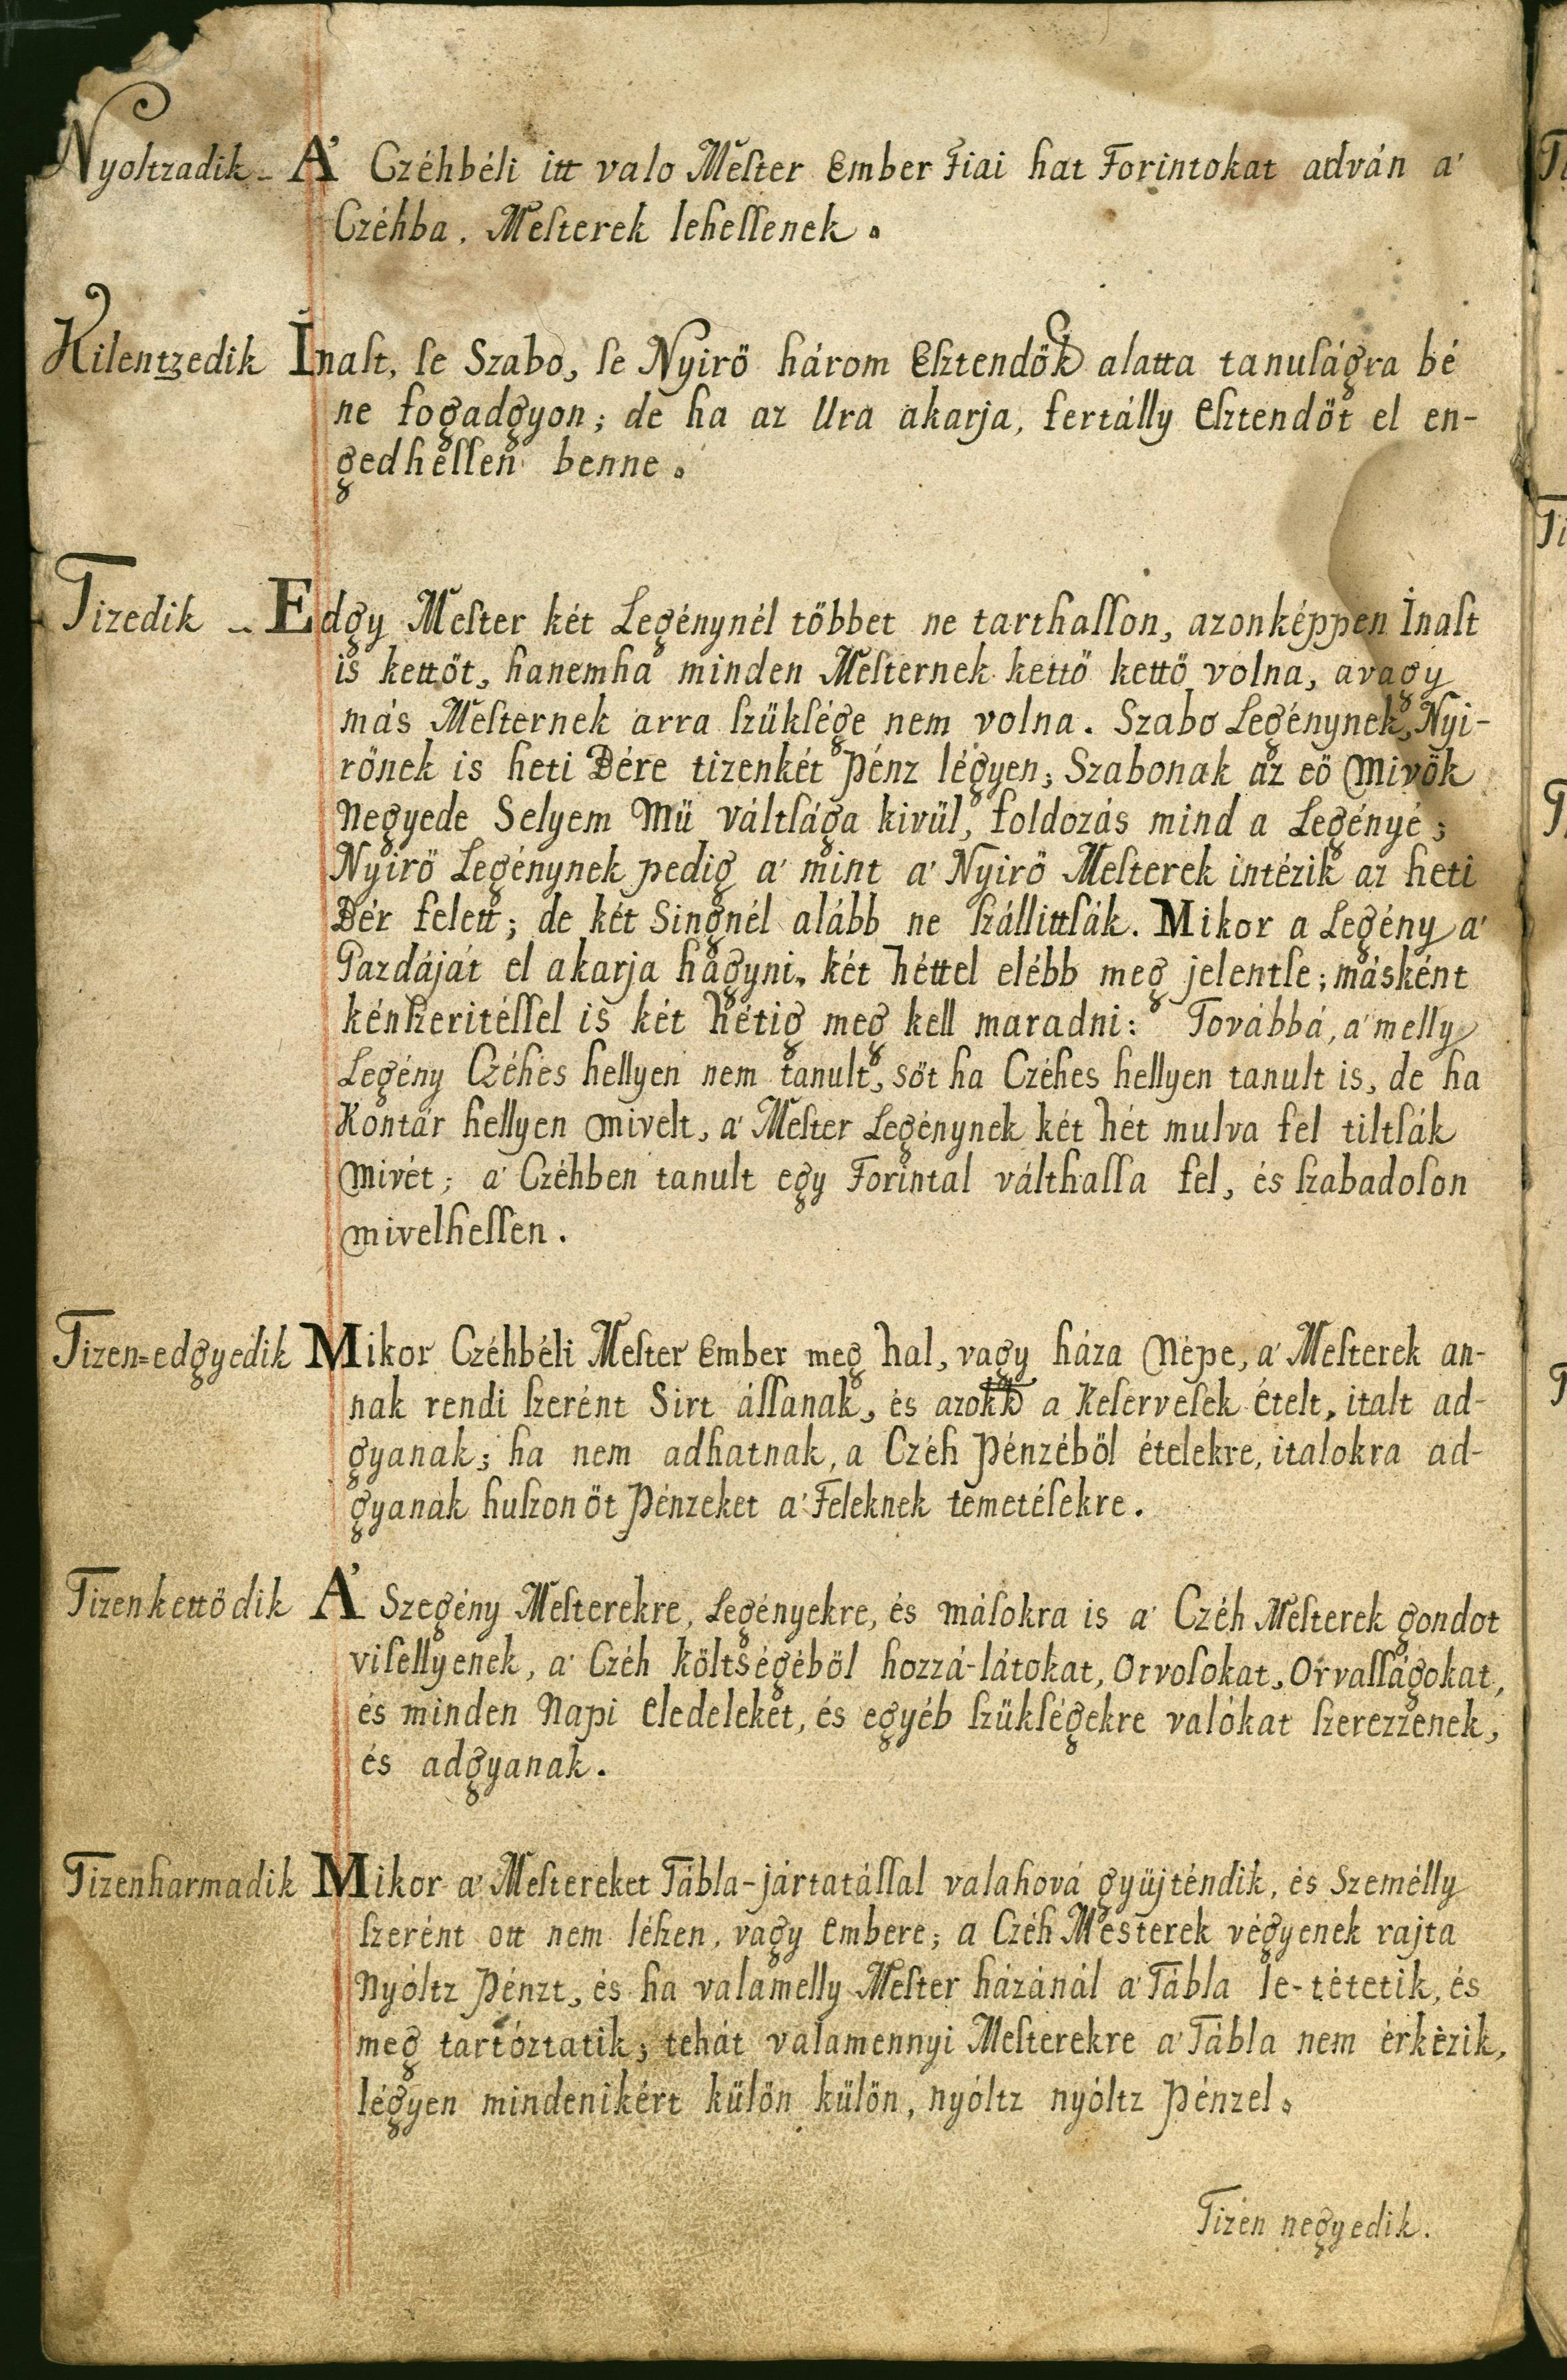 Nyoltzadik - A' Czéhbéli itt valo Meſter Ember Fiai hat Forintokat adván a'
Czéhba, Meſterek leheſſenek.
Kilentzedik Inaſt, ſe Szabo, ſe Nyirö három Eſztendök alatta tanuſágra bé
ne fogadgyon; de ha az Ura akarja, fertálly Eſztendöt el en-
gedheſſen benne.
Tizedik - Edgy Meſter két Legénynél többet ne tarthaſſon, azonképpen Inaſt
is kettöt, hanemha minden Meſternek kettö kettö volna, avagy
más Meſternek arra ſzükſége nem volna. Szabo Legénynek, Nyi-
rönek is heti Bére tizenkét Pénz légyen; Szabonak az eö Mivök
Negyede Selyem Mü váltſága kivül, foldozás mind a Legényé;
Nyirö Legénynek pedig a' mint a' Nyirö Meſterek intézik az heti
Bér felett; de két Singnél alább ne ſzállittſák. Mikor a Legény a'
Gazdáját el akarja hagyni, két héttel elébb meg jelentſe; másként
kénſzeritéſſel is két hétig meg kell maradni: Továbbá, a' melly
Legény Czéhes hellyen nem tanult, söt ha Czéhes hellyen tanult is, de ha
Kontár hellyen mivelt, a' Meſter Legénynek két hét mulva fel tiltſák
Mivét; a' Czéhben tanult egy Forintal válthaſſa fel, és ſzabadoſon
mivelheſſen.
Tizen=edgyedik Mikor Czéhbéli Meſter Ember meg hal, vagy háza Népe, a' Meſterek an-
nak rendi ſzerént Sirt áſſanak, és azokk a Keſerveſek ételt, italt ad-
gyanak; ha nem adhatnak, a Czéh Pénzéböl ételekre, italokra ad-
gyanak huſzon öt Pénzeket a' Feleknek temetéſekre.
Tizenkettödik A' Szegény Meſterekre, Legényekre, és máſokra is a' Czéh Meſterek gondot
viſellyenek, a' Czéh költségéböl hozzá-látokat, Orvoſokat, Orvaſſágokat,
és minden Napi eledeleket, és egyéb ſzükſégekre valókat ſzerezzenek,
és adgyanak.
Tizenharmadik Mikor a' Meſtereket Tábla-jártatáſſal valahová gyüjténdik, és Személly
ſzerént ott nem léſzen, vagy Embere; a Czéh Mesterek végyenek rajta
Nyóltz Pénzt, és ha valamelly Meſter házánál a' Tábla le-tétetik, és
meg tartóztatik; tehát valamennyi Meſterekre a' Tábla nem érkézik,
légyen mindenikért külön külön, nyóltz nyóltz Pénzel.
Tizen negyedik.